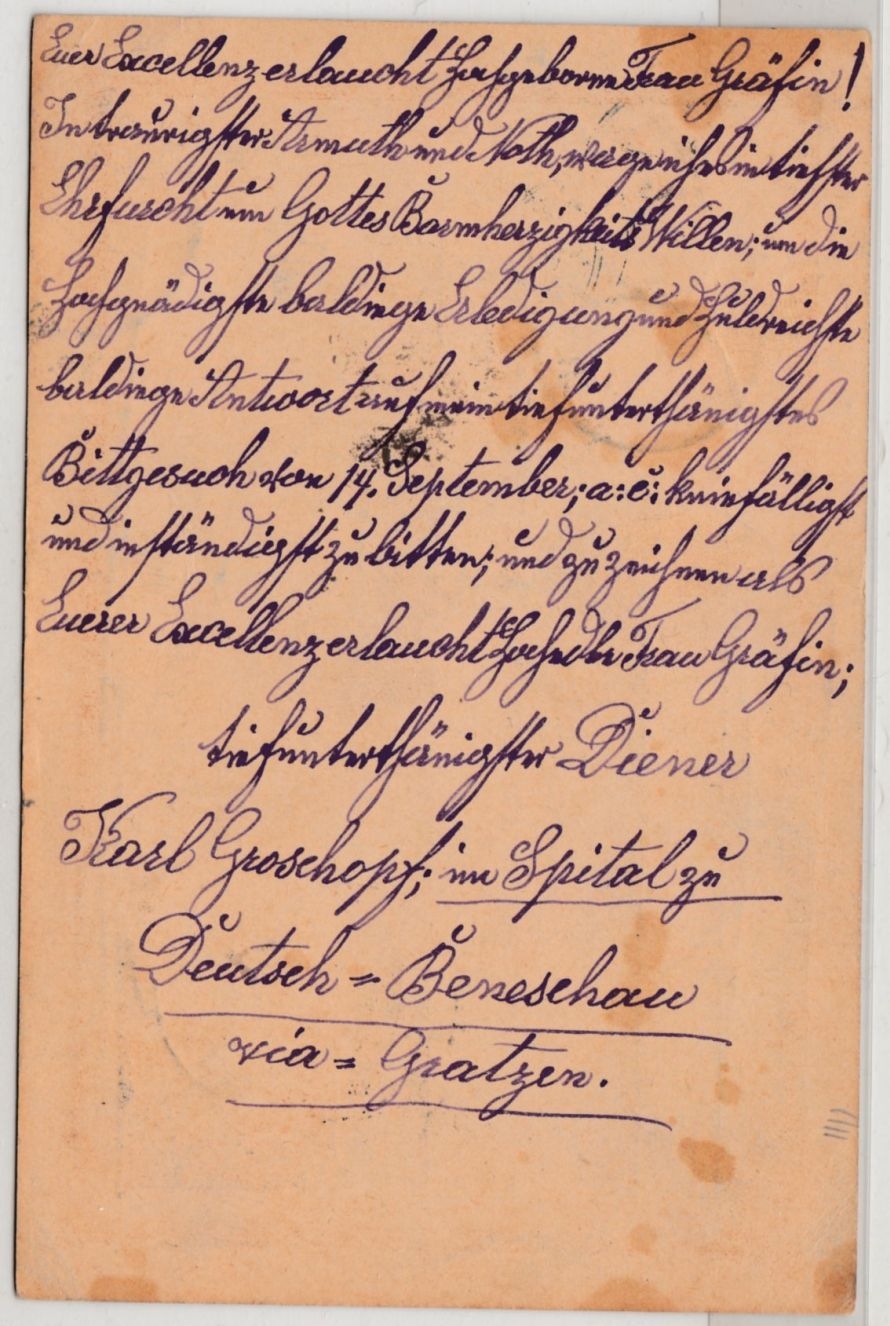 Euer Excellenz erlaucht Hochgeborne Frau Gräfin!
In traurigster Armuth und Noth, wage ich es in tiefster
Ehrfurcht um Gottes Barmherzigkeits Willen; um die
Hochgnädigste baldiege Erledigung und Huldreichste
baldiege Antwort auf mein tiefunterthänigstes
Bittgesuch von 14. September; a: c: kniefälligst
und inständigst zu bitten; und zu zeichnen als
Euerer Excellenz erlaucht Hochedle Frau Gräfin;
tiefunterthänigster Diener
Karl Groschopf; im Spital zu
Deutsch = Beneschau
via = Gratzen.